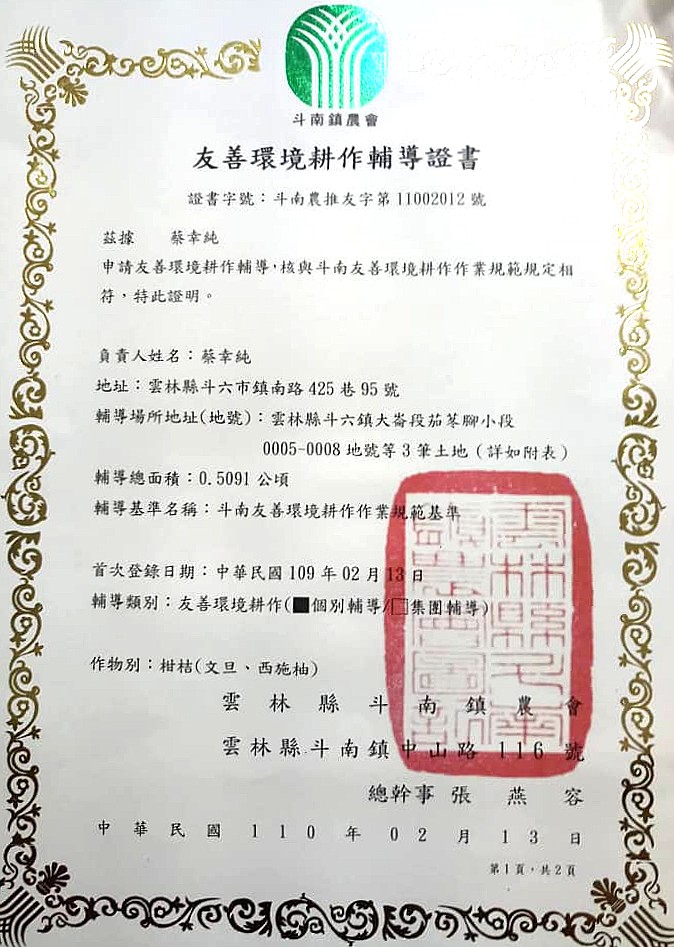 斗南鎮農會
友善環境耕作輔導證書
證書字號：斗南農推友字第11002012號
茲據　　蔡幸純
申請友善環境耕作輔導，核與斗南友善環境耕作作業規範規定相
符，特此證明。
負責人姓名：蔡幸純
地址：雲林縣斗六市鎮南路425巷95號
輔導場所地址(地號)：雲林縣斗六鎮大崙段茄苳腳小段
0005-0008地號等3筆土地（詳如附表）
輔導總面積：0.5091公頃
輔導基準名稱：斗南友善環境耕作作業規範基準
首次登錄日期：中華民國109年02月13日
輔導類別：友善環境耕作(■個別輔導/□集團輔導)
作物別：柑桔(文旦、西施柚)
雲林縣斗南鎮農會
雲林縣斗南鎮中山路116號
總幹事張燕容
中華民國110年02月13日
第1頁，共2頁